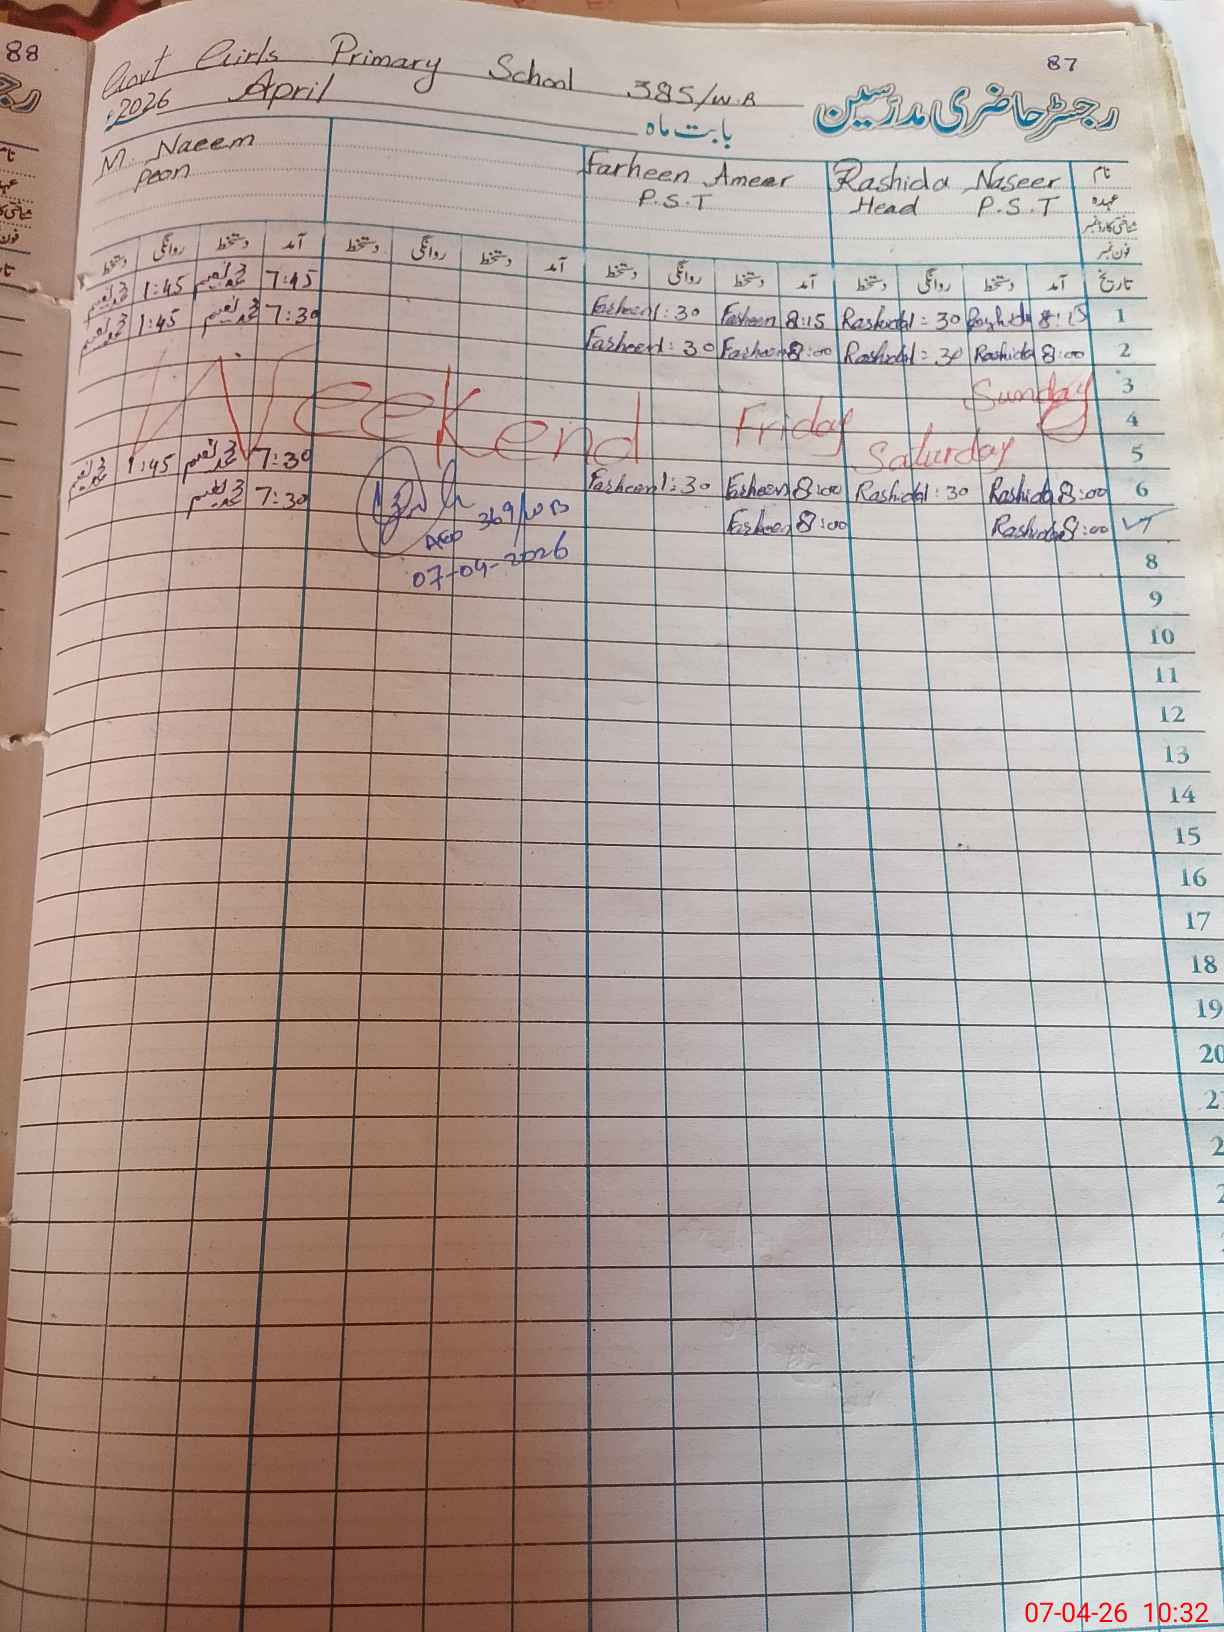 88
87
Govt Girls Primary School 385/W.B
رجسٹر حاضری مدرسین
2026 April
بابت ماہ
M Naeem
Peon
Farheen Ameer
P.S.T
Rashida Naseer
Head P.S.T
نام
عہدہ
شناختی کارڈ نمبر
فون نمبر
دستخط روانگی دستخط آمد دستخط روانگی دستخط آمد دستخط روانگی دستخط آمد دستخط روانگی دستخط آمد تاریخ
محمد نعیم 1:45 محمد نعیم 7:45 Farheen 1:30 Farheen 8:15 Rashida 1:30 Rashida 8:15 1
محمد نعیم 1:45 محمد نعیم 7:30 Farheen 1:30 Farheen 8:00 Rashida 1:30 Rashida 8:00 2
3
4
5
Weekend Friday Saturday Sunday
محمد نعیم 1:45 محمد نعیم 7:30 Farheen 1:30 Farheen 8:00 Rashida 1:30 Rashida 8:00 6
محمد نعیم 7:30 Farheen 8:00 Rashida 8:00
AEO 369/WB
07-04-2026
8
9
10
11
12
13
14
15
16
17
18
19
20
07-04-26 10:32